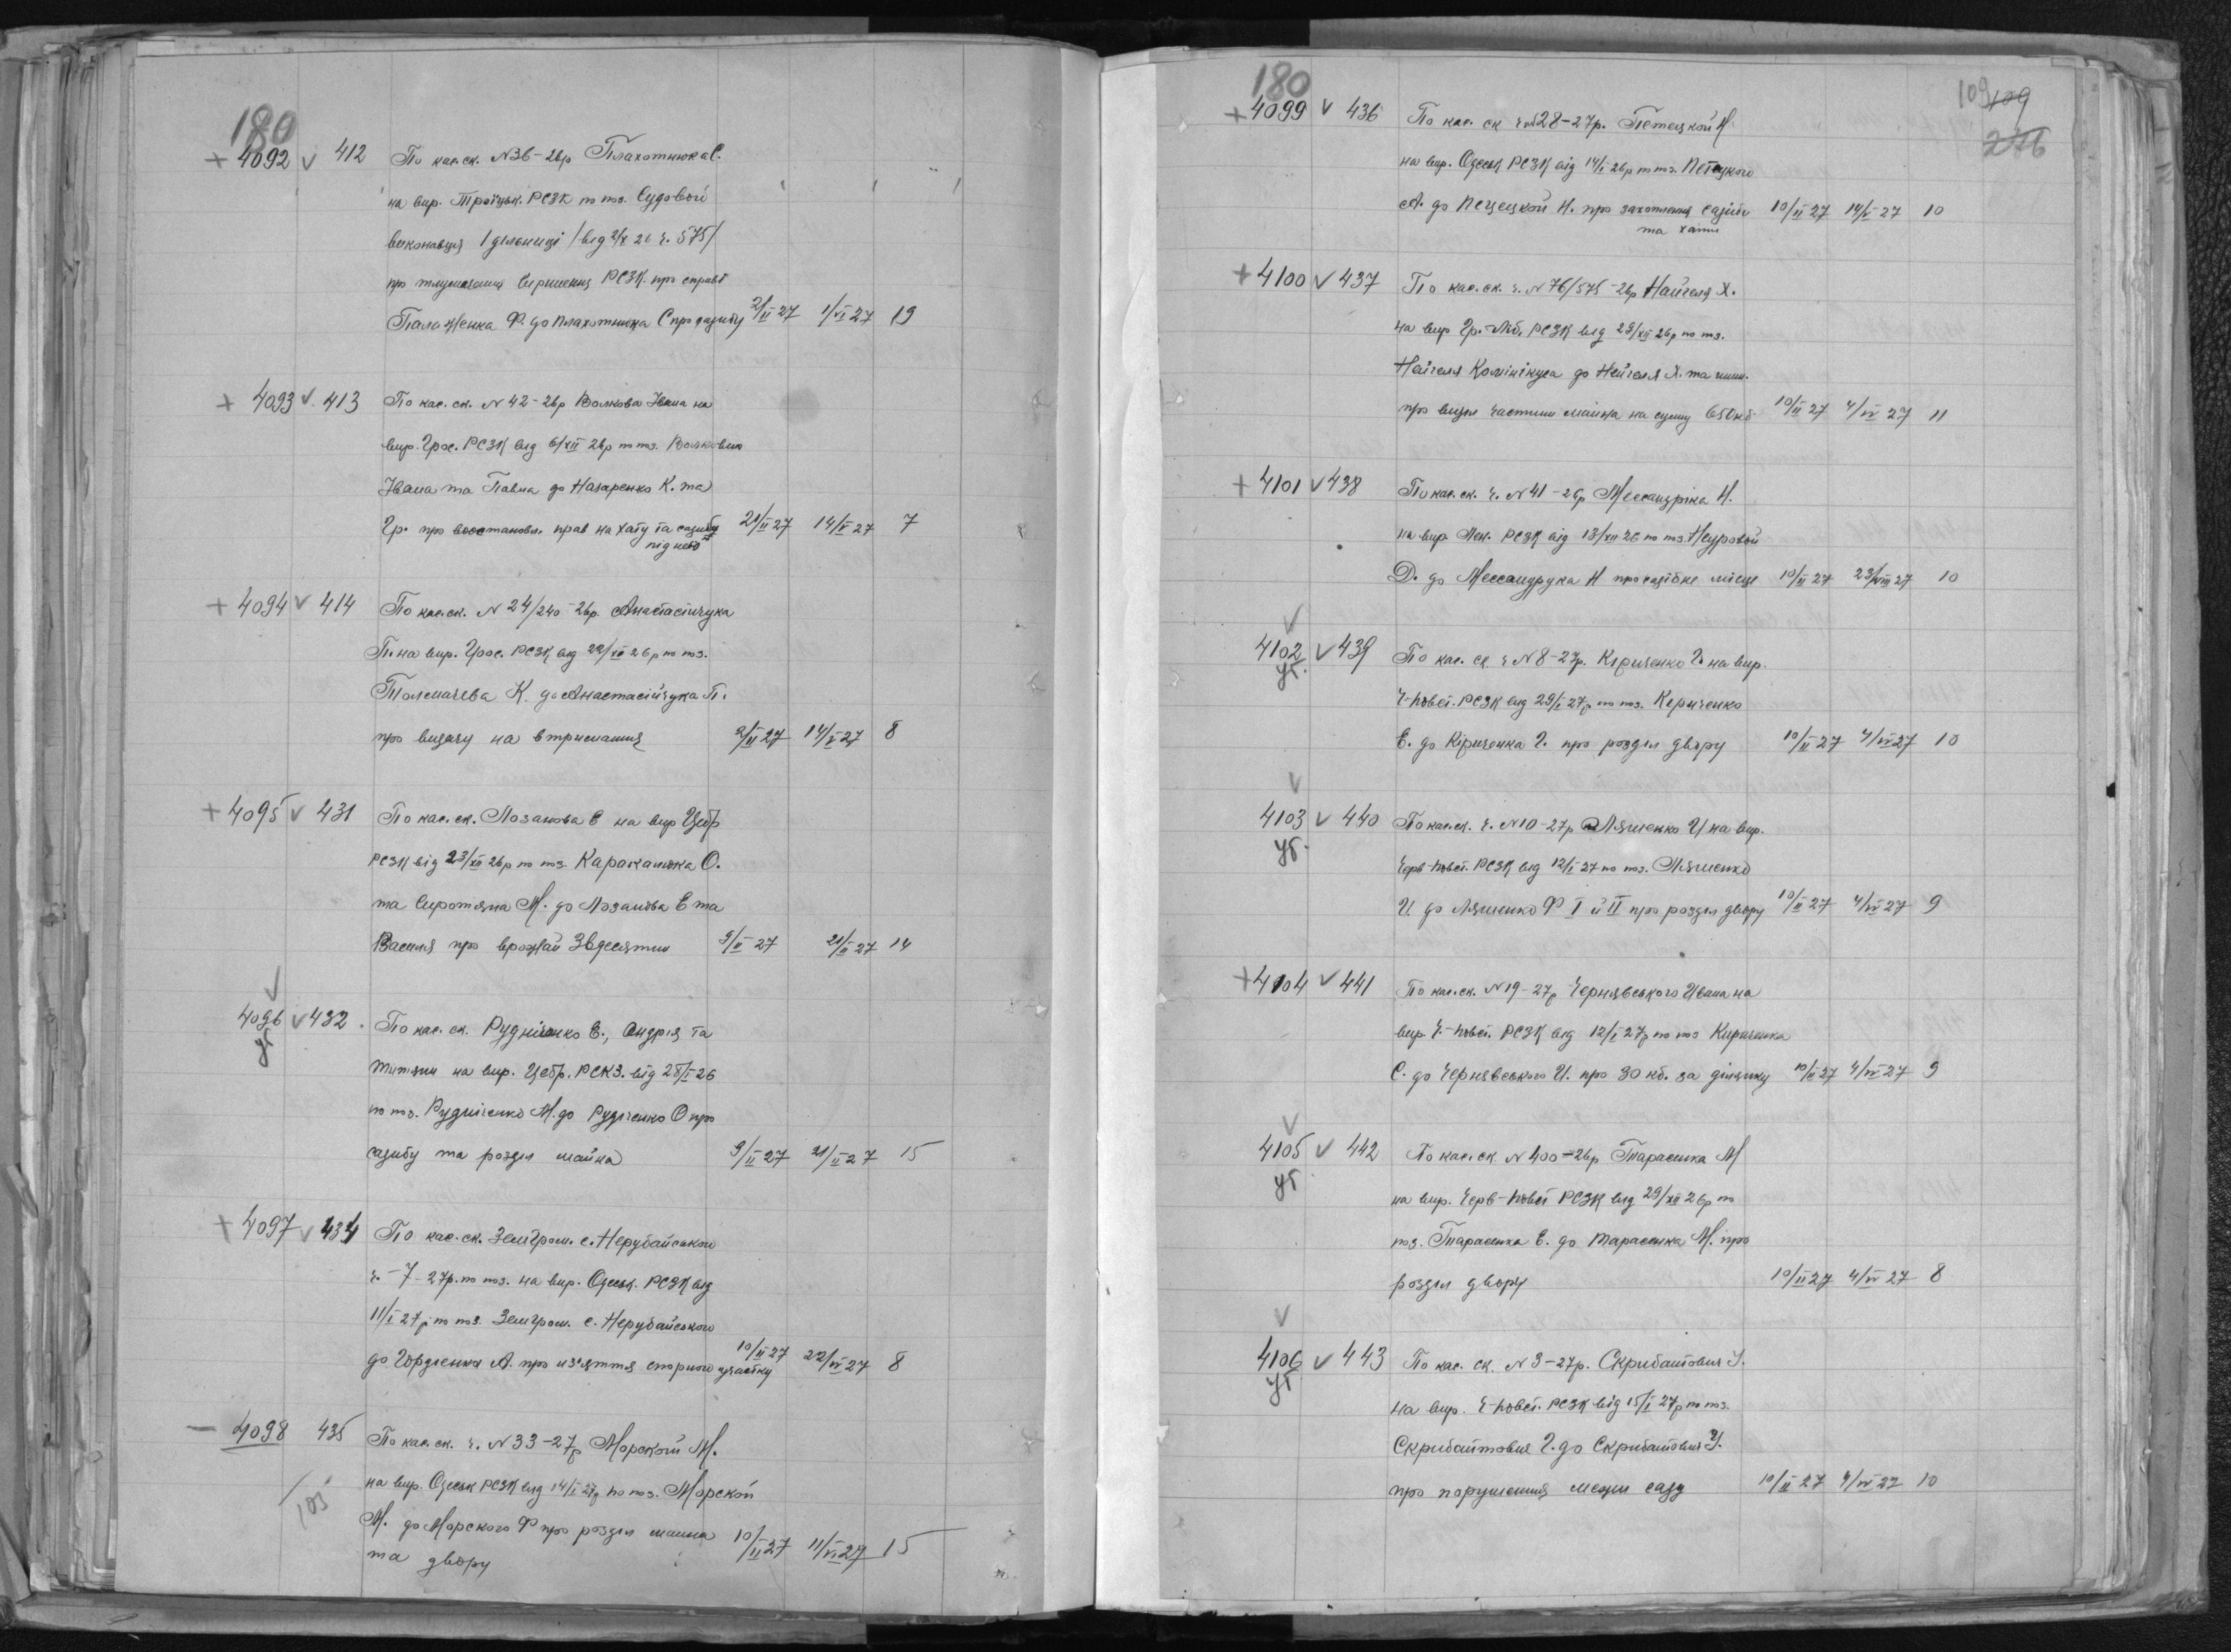 180
+ 4092 v 412 По кас. ск. N36-26р Плахотнюка С.
на вир. Троїцьк. РСЗК по поз. Судовой
виконавця 1 дільниці /від 2/X 26 ч. 575/
про тлумачання вирішення РСЗК про справі
Палаженка Ф. до Плахотнюка С про садибу 21/II 27 1/VI 27 19
+ 4093 v 413 По кас. ск. N 42-26р Волкова Івана на
вир. Грос. РСЗК від 6/XII 26р по поз.
Івана та Павла до Назаренко К. та
Гр. про востановл. прав на хату та садибу 21/II 27 14/V 27 7
під нею
+ 4094 v 414 По кас. ск. N 24/240-26р. Анастасійчука
П. на вир. Грос. РСЗК від 22/XII 26р по поз.
Толмачева К. до Анастасійчука П.
про видачу на втримання 2/II 27 14/V 27 8
+ 4095 v 431 По кас. ск. Лозанова Е на вир Цебр
РСЗК від 23/XII 26р по поз. Каракалюка О.
та Сиротяна М. до Лозанова Е та
Василя про врожай 3 десятин 9/II 27 21/II 27 14
v
4096 v 432 По кас. ск. Рудніченко Е., Андрія та
уб Титяни на вир. Цебр. РСКЗ. від 28/I 26
по поз. Рудніченко М. до Рудіченко О про
садибу та розділ майна 9/II 27 21/II 27 15
+ 4097 v 434 По кас. ск. Землгром. с. Нерубайського
ч. - 7-27р. по поз. на вир. Одеськ. РСЗК від
11/I 27р по поз. Землгром. с. Нерубайського
до Гордієнка А. про из'яття спорного участку 10/II 27 22/IV 27 8
— 4098 435 По кас. ск. ч. N 33-27р Морской М.
на вир. Одеськ РСЗК від 14/I 27р по поз. Морской
103
М. до Морского Ф про розділ майна 10/II 27 11/VI 27 15
та двору
180
109 109
276
+ 4099 v 436 По кас. ск ч N28-27р. Петецкой Н.
на вир. Одеськ РСЗК від 14/I 26р по поз. Петецкого
А. до Пецецкой Н. про захоплення садиби 10/II 27 14/V 27 10
та хати
+ 4100 v 437 По кас. ск. ч. N 76/575-26р Найгеля Х.
на вир Гр. Ліб. РСЗК від 23/XII 26р по поз.
Нейгеля до Нейгеля Х. та инш.
про виділ частини майна на суму 650кб 10/II 27 4/IV 27 11
+ 4101 v 438 По кас. ск. ч. N 41-26р Н.
на вир. Лен. РСЗК від 13/XII 26 по поз.
Д. до Н про садібне місце 10/II 27 23/VIII 27 10
v
4102 v 439 По кас. ск ч N 8-27р. Кіриченко Г. на вир.
уб. Ч-Повст. РСЗК від 29/I 27р по поз. Кериченко
Е. до Кіриченка Г. про розділ двору 10/II 27 4/IV 27 10
v
4103 v 440 По кас. ск. ч. N10-27р Ляшенко И на вир.
уб. Черв-Повст. РСЗК від 12/I 27 по поз. Ляшенко
И. до Ляшенко Ф І й ІІ про розділ двору 10/II 27 4/IV 27 9
+ 4104 v 441 По кас. ск. N19-27р Чернявського Ивана на
вир. Ч-Повст. РСЗК від 12/I 27р по поз Кириченка
С. до Чернявського И. про 30 кб. за ділянку 10/II 27 4/IV 27 9
v
4105 v 442 По кас. ск. N 400-26р Тарасенка М
уб на вир. Черв-Повст РСЗК від 29/XII 26р по
поз. Тарасенка Е. до Тарасенка М. про
розділ двору 10/II 27 4/IV 27 8
v
4106 v 443 По кас. ск. N 3-27р. Скрибайтовия У.
уб на вир. Ч-Повст. РСЗК від 15/I 27р по поз.
Скрибайтовия Г. до Скрибайтовия У.
про порушення межи саду 10/II 27 4/IV 27 10